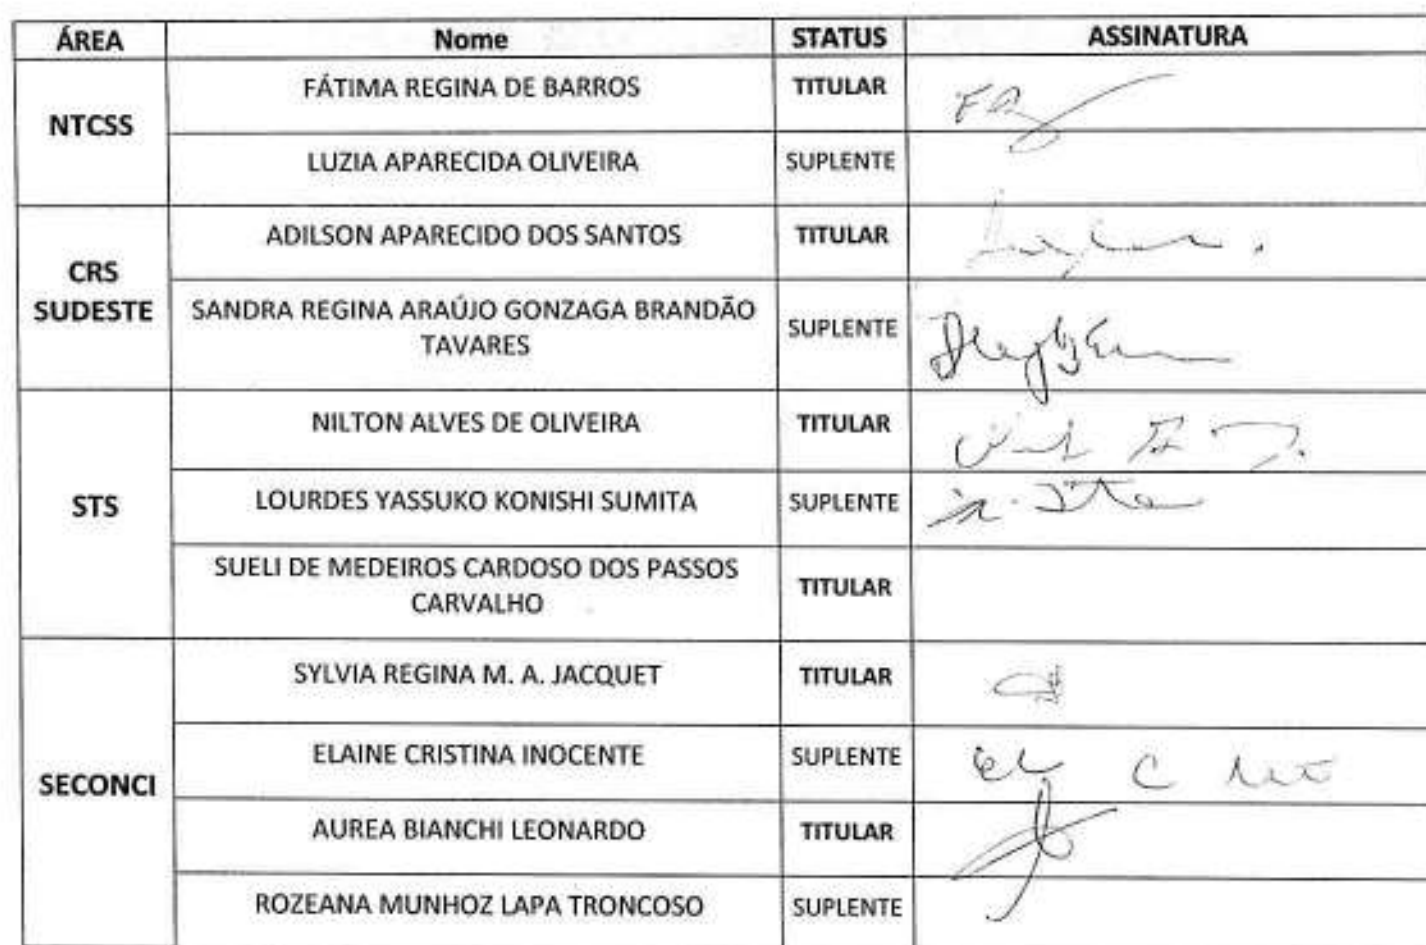 ÁREA Nome STATUS ASSINATURA
NTCSS
FÁTIMA REGINA DE BARROS TITULAR
LUZIA APARECIDA OLIVEIRA SUPLENTE
CRS
SUDESTE
ADILSON APARECIDO DOS SANTOS TITULAR
SANDRA REGINA ARAÚJO GONZAGA BRANDÃO
TAVARES
SUPLENTE
STS
NILTON ALVES DE OLIVEIRA TITULAR
LOURDES YASSUKO KONISHI SUMITA SUPLENTE
SUELI DE MEDEIROS CARDOSO DOS PASSOS
CARVALHO
TITULAR
SECONCI
SYLVIA REGINA M. A. JACQUET TITULAR
ELAINE CRISTINA INOCENTE SUPLENTE
AUREA BIANCHI LEONARDO TITULAR
ROZEANA MUNHOZ LAPA TRONCOSO SUPLENTE